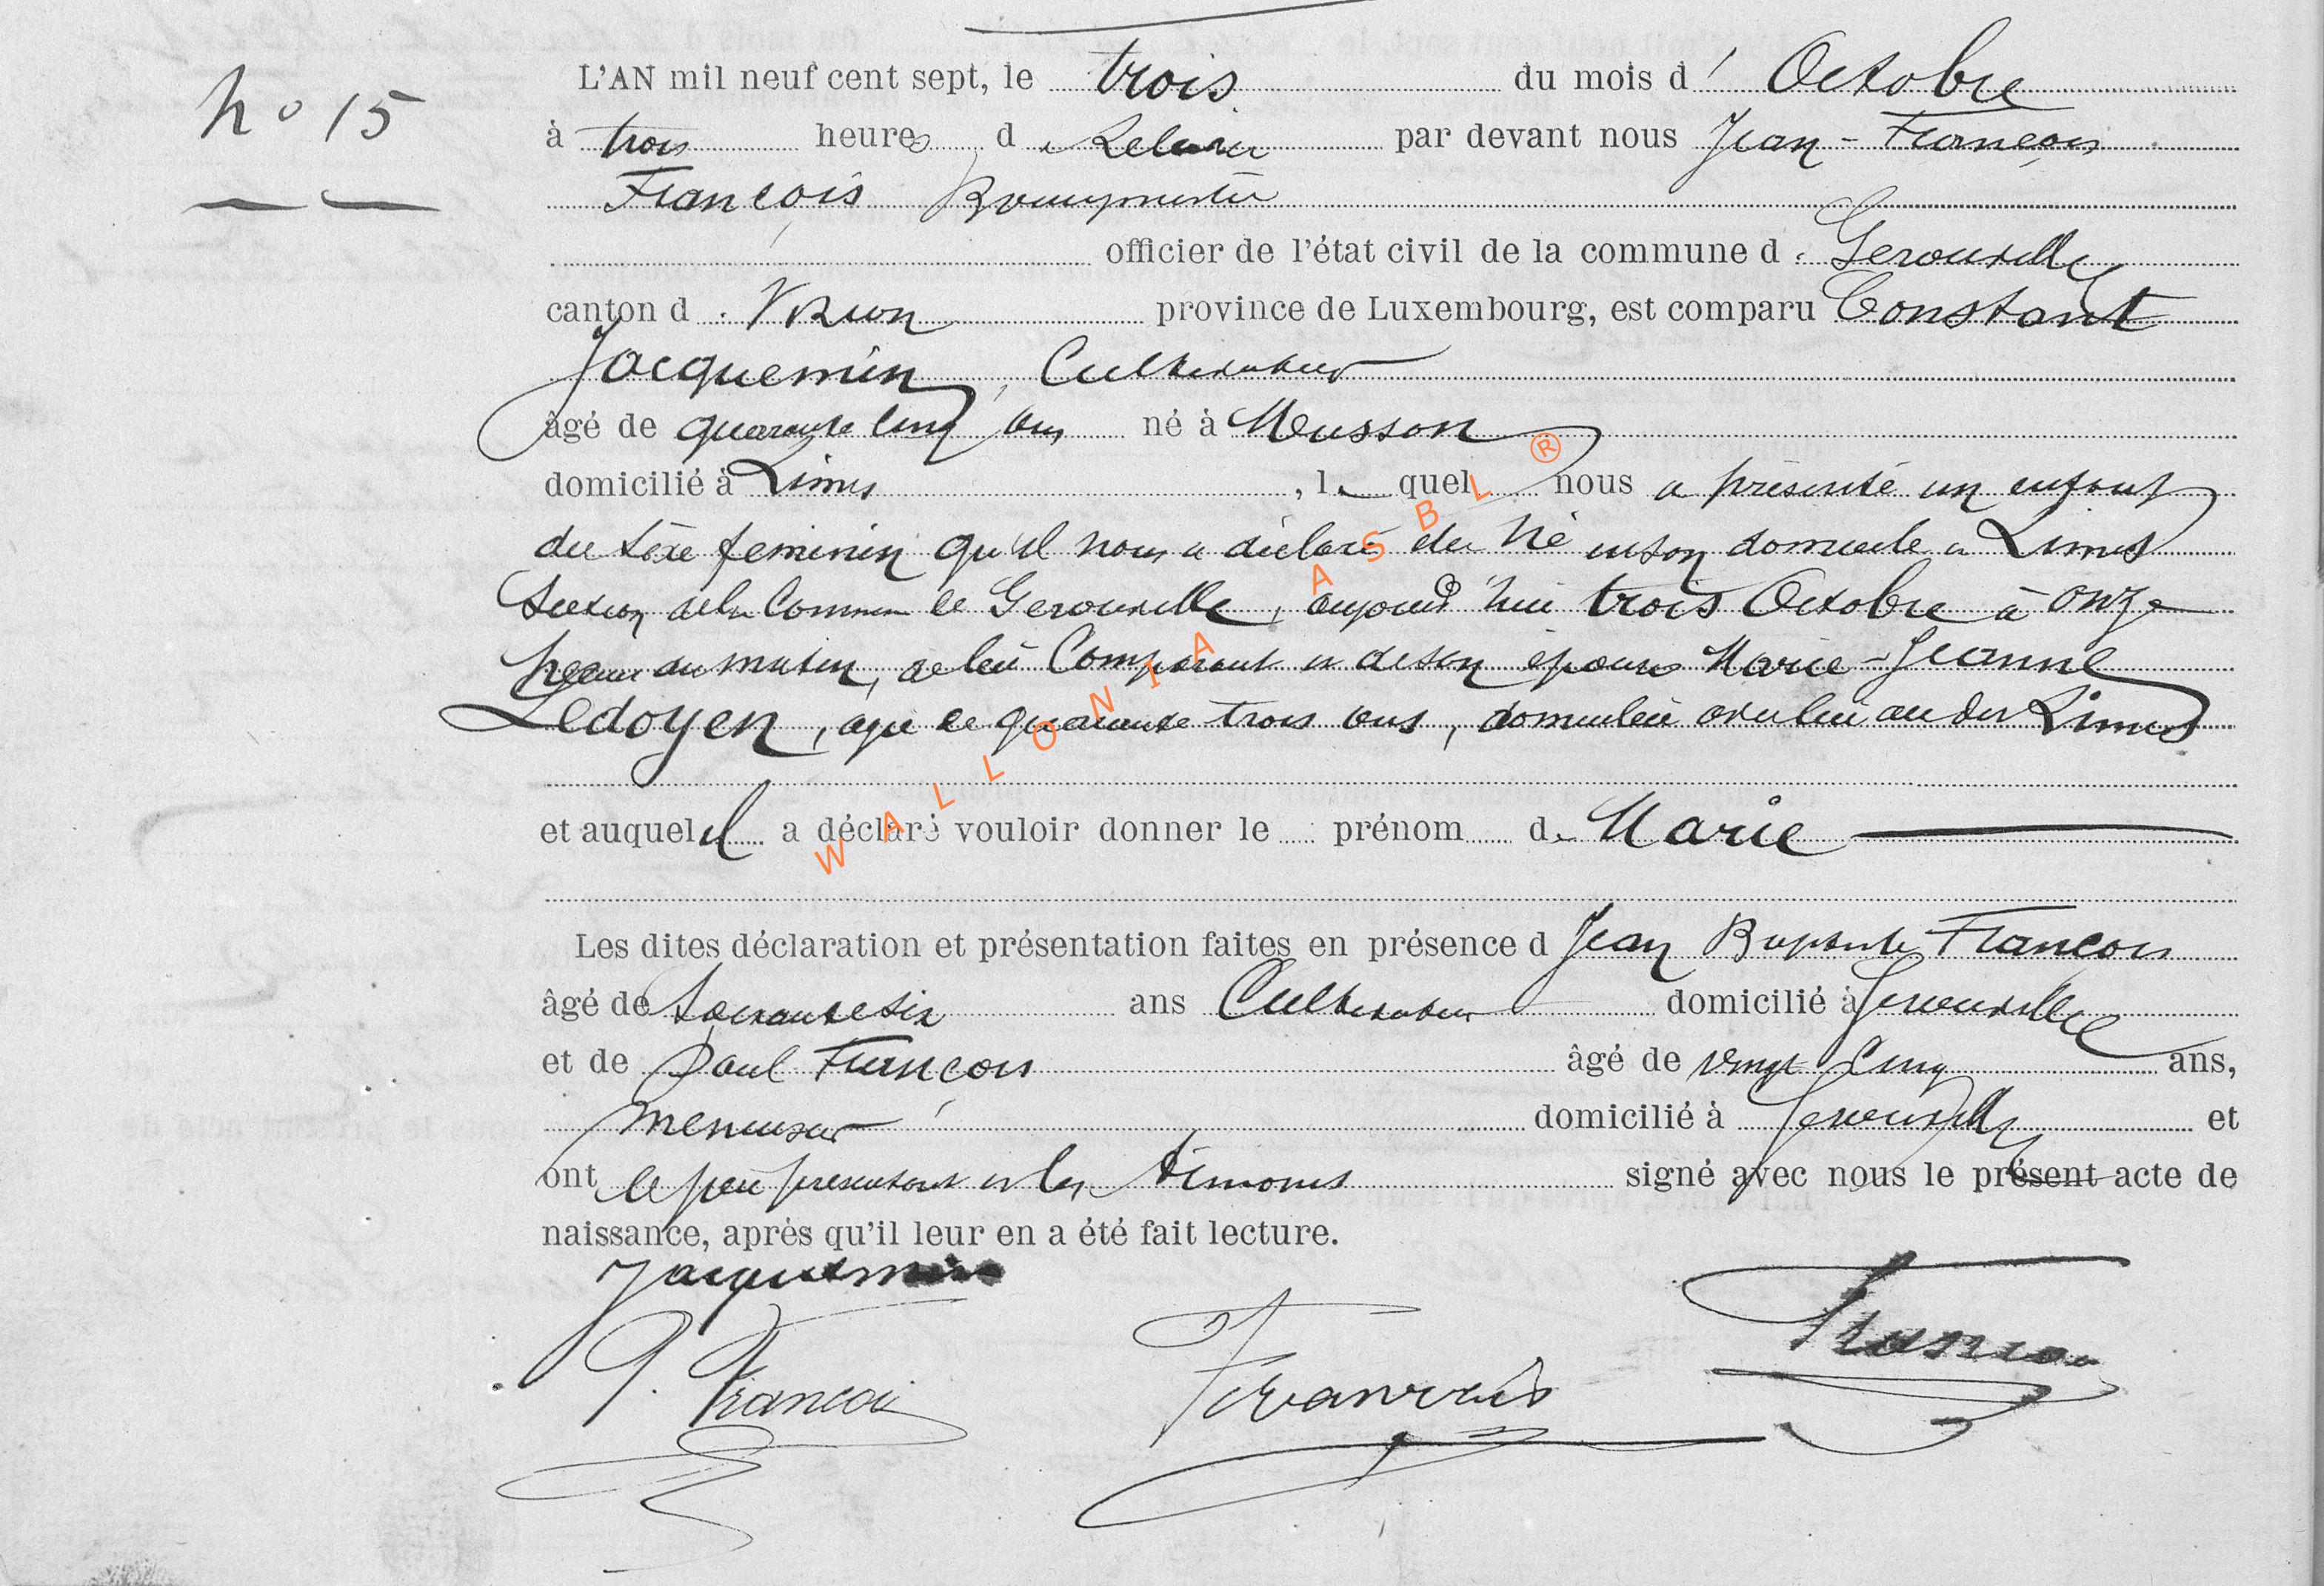 L'AN mil neuf cent sept, le trois du mois d' Octobre
No 15
à trois heures d par devant nous Jean-François
François Bourgmestre
officier de l'état civil de la commune d. Gerouville
canton d. Virton province de Luxembourg, est comparu Constant
Jacquemin, Cultivateur
âgé de quarante cinq ans né à Musson
domicilié à Limes, le quel nous a présenté un enfant
du sexe feminin qu'il nous a déclaré être né en son domicile a Limes
Section de la Commune de Gerouville, aujourd'hui trois Octobre à onze
heures du matin, de lui Comparant et de son épouse Marie-Jeanne
Ledoyen, agée de quarante trois ans, domiciliée avec lui au dit Limes
et auquel il a déclaré vouloir donner le prénom de Marie
Les dites déclaration et présentation faites en présence d Jean Baptiste François
âgé de soixante six ans Cultivateur domicilié à Gerouville
et de Paul François âgé de vingt cinq ans,
menuisier domicilié à Gerouville et
ont le père présentant et les témoins signé avec nous le présent acte de
naissance, après qu'il leur en a été fait lecture.
Jacquemin
P. François François François
WALLONIA ASBL ®